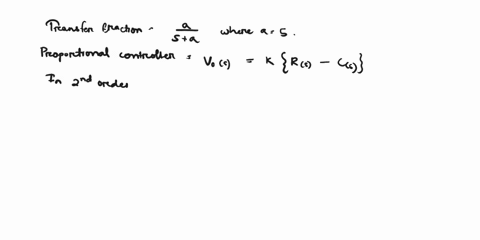 Transfer fraction - a/(s+a) where a = 5.
Proportional controller : V₀(s) = K {R(s) - C(s)}
In 2nd order